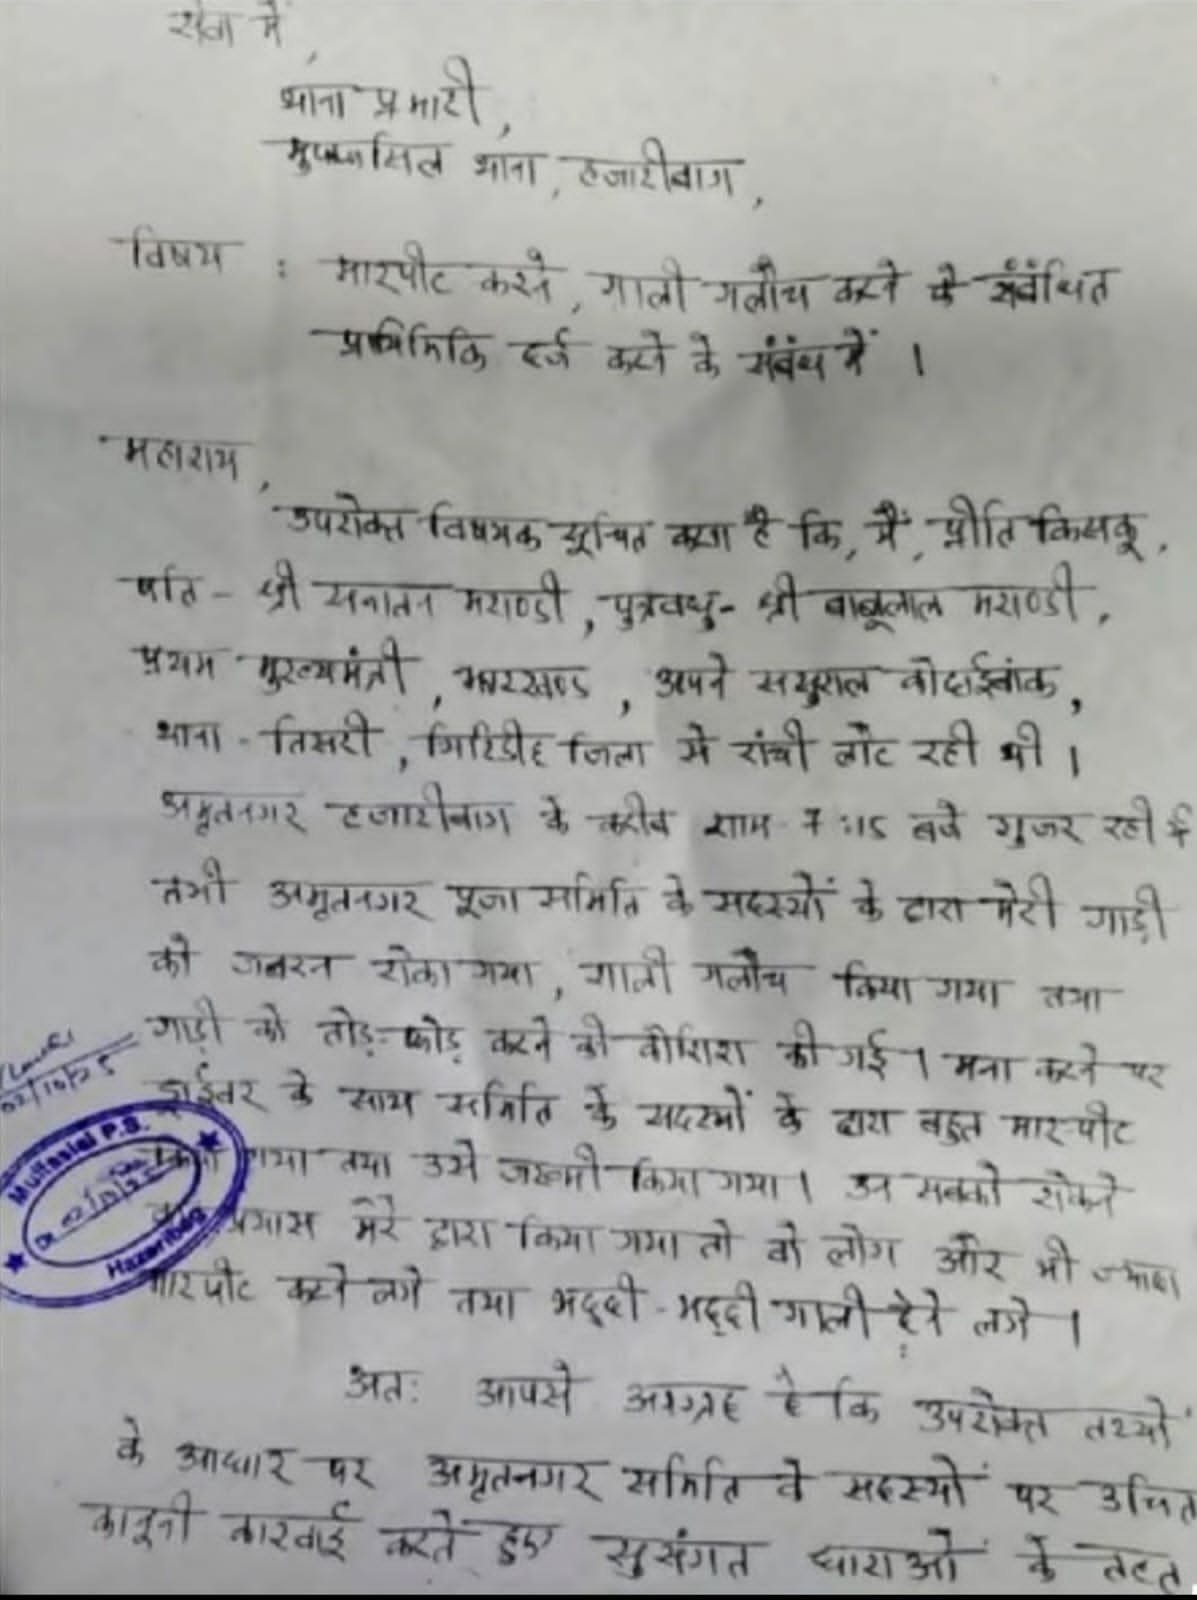 सेवा में,
थाना प्रभारी,
मुफ्फसिल थाना, हजारीबाग,
विषय : मारपीट करने, गाली गलौच करने के संबंधित
प्राथमिकि दर्ज करने के संबंध में ।
महाशय,
उपरोक्त विषयक सूचित करना है कि, मैं, प्रीति किसकू,
पति - श्री सनातन मराण्डी, पुत्रवधु - श्री बाबूलाल मराण्डी,
प्रथम मुख्यमंत्री, झारखण्ड, अपने ससुराल कोदाईबांक,
थाना - तिसरी, गिरिडीह जिला से रांची लौट रही थी ।
अमृतनगर हजारीबाग के करीब शाम 7:15 बजे गुजर रही थी
तभी अमृतनगर पूजा समिति के सदस्यों के द्वारा मेरी गाड़ी
को जबरन रोका गया, गाली गलौच किया गया तथा
गाड़ी को तोड़-फोड़ करने की कोशिश की गई । मना करने पर
02/10/25
ड्राईवर के साथ समिति के सदस्यों के द्वारा बहुत मारपीट
Muffasial P.S.
किया गया तथा उसे जख्मी किया गया । उन सबको रोकने
Dt. 02/10/25
का प्रयास मेरे द्वारा किया गया तो वो लोग और भी ज्यादा
Hazaribag
मारपीट करने लगे तथा भद्दी-भद्दी गाली देने लगे ।
अतः आपसे आग्रह है कि उपरोक्त तथ्यों
के आधार पर अमृतनगर समिति के सदस्यों पर उचित
कानूनी कारवाई करते हुए सुसंगत धाराओं के तहत